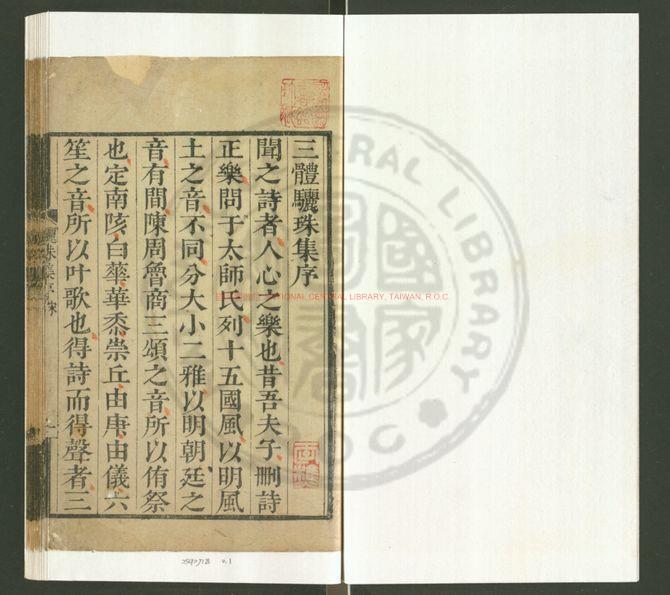 三體驪珠集序
聞之詩者人心之樂也昔吾夫子刪詩
正樂問于太師氏列十五國風以明風
土之音不同分大小二雅以明朝廷之
音有間陳周魯商三頌之音所以侑祭
也定南陔白華華黍崇丘由庚由儀六
笙之音所以叶歌也得詩而得聲者三
NATIONAL CENTRAL LIBRARY, TAIWAN, R.O.C.